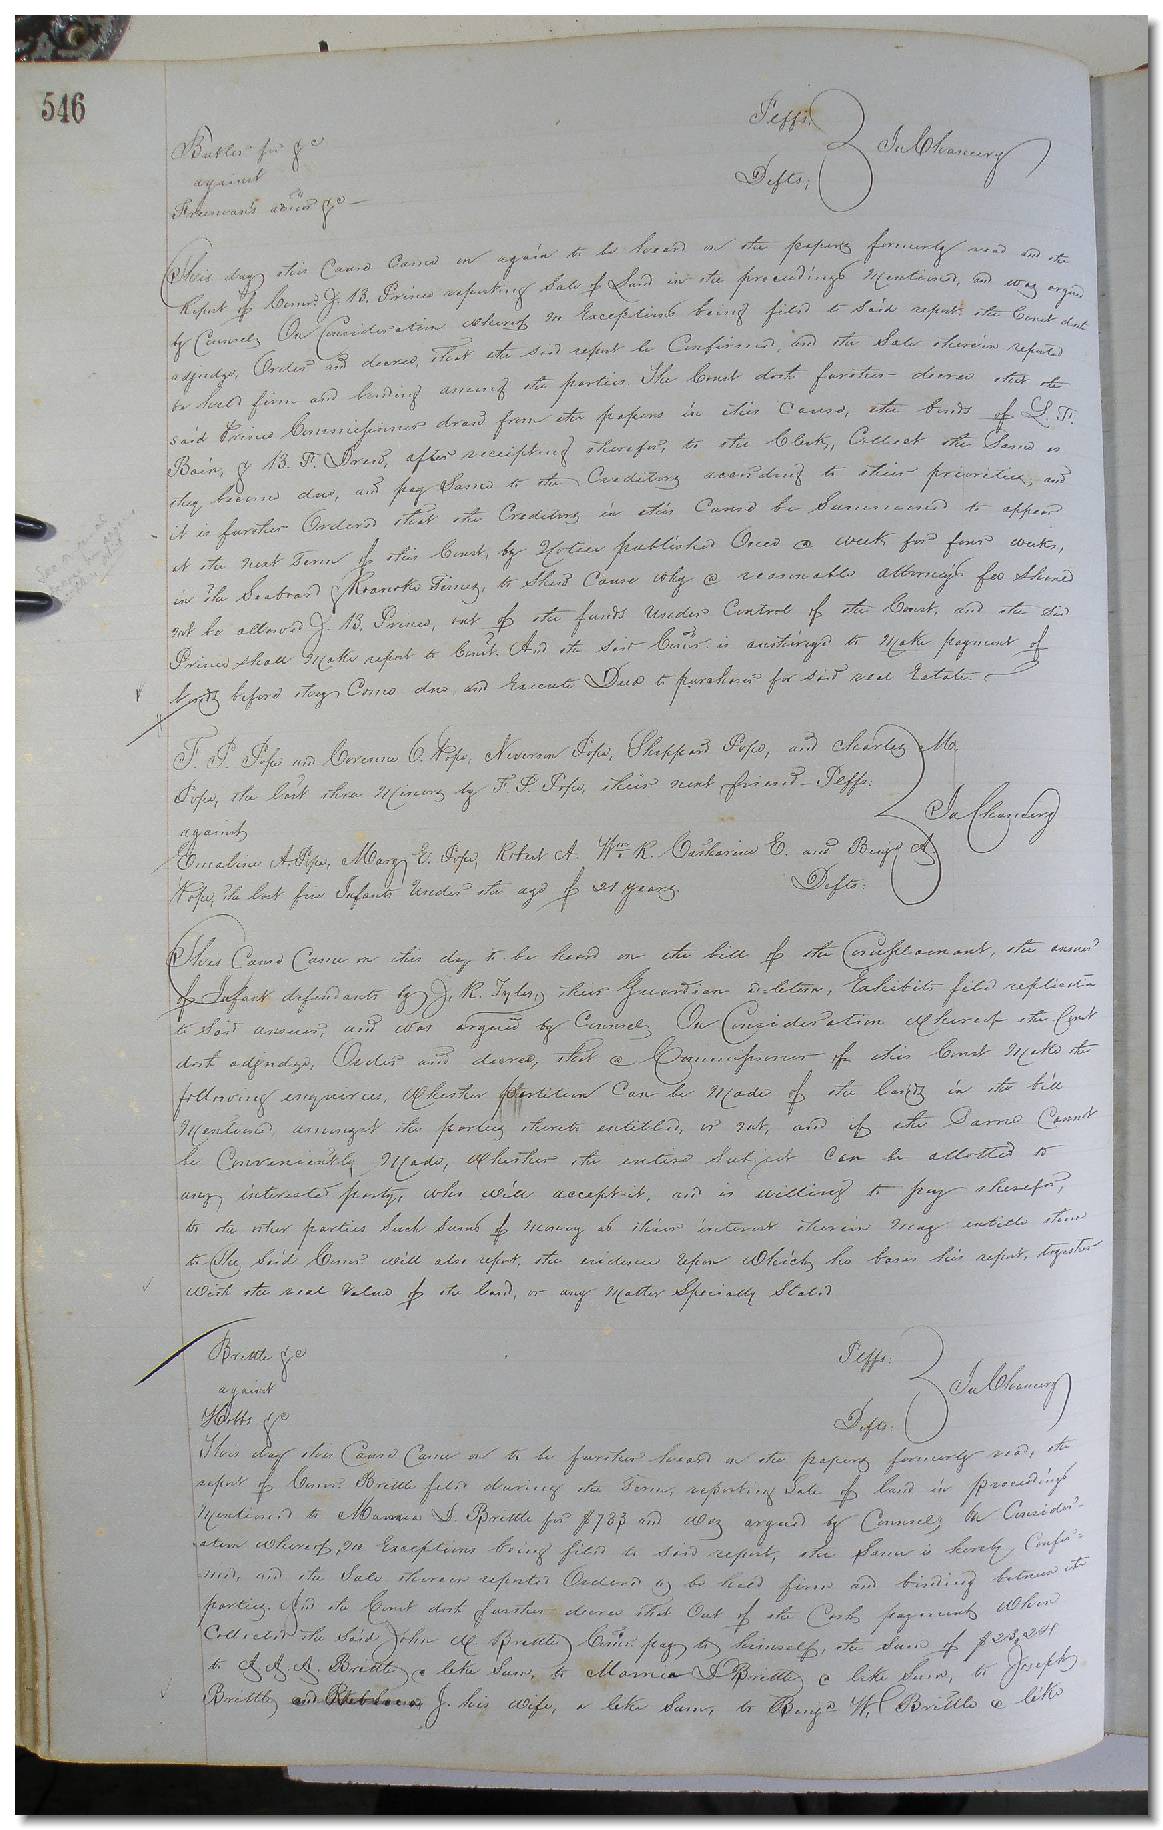 546
Butler for &c Plffs.
against In Chancery
Freeman's admr &c Defts.
This day this Cause Came on again to be heard on the papers formerly read and the
Report of Comr J. B. Prince reporting Sale of Land in the proceedings Mentioned, and was argued
by Counsel, On Consideration whereof no Exceptions being filed to said report, the Court doth
adjudge, Order and decree, that the said report be Confirmed, and the Sale therein reported
be held firm and binding among the parties. The Court doth further decree that the
said Prince Commissioner draw from the papers in this Cause, the bonds of L. F.
Bain, & B. F. Drew, after receipting therefor, to the Clerk, Collect the Same as
they become due, and pay Same to the Creditors according to their priorities, and
it is further Ordered that the Creditors in this Cause be Summoned to appear
at the next Term of this Court, by Notice published Once a week for four weeks,
in the Seaboard Roanoke Times, to Shew Cause why a reasonable attorney's fee should
not be allowed J. B. Prince, out of the funds under Control of the Court, and the said
Prince shall Make report to Court. And the said Comr. is authorized to Make payment of
bonds before they Come due, and Execute Deed to purchaser for said real Estate.
F. P. Pope and Corenne C. Pope, Niverson Pope, Sheppard Pope, and Charley M.
Pope, the last three Minors by F. P. Pope, their next friend - Plffs.
against In Chancery
Emaline A. Pope, Mary E. Pope, Robert A. Wm. R. Catharine E. and Benj. A
Pope, the last five Infants Under the age of 21 years Defts.
This Cause Came on this day to be heard on the bill of the Complainant, the answer
of Infant defendants by J. R. Tyler, their Guardian ad litem, Exhibits filed replication
to said answer, and was argued by Counsel, On Consideration Whereof the Court
doth adjudge, Order and decree, that a Commissioner of this Court Make the
following enquiries, Whether partition Can be Made of the lands in the bill
Mentioned, amongst the parties thereto entitled, or not, and if the Same Cannot
be Conveniently Made, Whether the entire Subject Can be allotted to
any interested party, who will accept it, and is willing to pay therefor,
to the other parties Such Sums of Money as their interest therein May entitle them
to. The Said Comr will also report, the evidence Upon Which he bases his report, together
With the real Value of the land, or any Matter Specially Stated
Brittle &c Plffs.
against In Chancery
&c Defts.
This day this Cause Came on to be further heard on the papers formerly read, the
report of Comr. Brittle filed during the Term, reporting Sale of land in proceedings
Mentioned to Mannia D. Brittle for $733 and was argued by Counsel, On Consider-
ation whereof, no Exceptions being filed to said report, the Same is hereby Confir-
med, and the Sale therein reported Ordered to be held firm and binding between the
parties. And the Court doth further decree that Out of the Cash payment, When
Collected the Said John M Brittle, Comr. pay to himself, the Sum of $23,241
to A. A. A. Brittle, a like Sum, to Mannia D Brittle, a like Sum, to Joseph
Brittle, and J. his wife, a like Sum, to Benj. W. Brittle a like